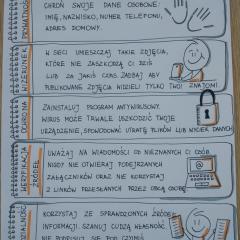 PRYWATNOŚĆ
CHROŃ SWOJE DANE OSOBOWE:
IMIĘ, NAZWISKO, NUMER TELEFONU,
ADRES DOMOWY.
WIZERUNEK
W SIECI UMIESZCZAJ TAKIE ZDJĘCIA,
KTÓRE NIE ZASZKODZĄ CI DZIŚ
LUB ZA JAKIŚ CZAS. ZADBAJ ABY
PUBLIKOWANE ZDJĘCIA WIDZIELI TYLKO TWOI ZNAJOMI
OCHRONA
ZAINSTALUJ PROGRAM ANTYWIRUSOWY.
WIRUS MOŻE TRWALE USZKODZIĆ TWOJE
URZĄDZENIE, SPOWODOWAĆ UTRATĘ PLIKÓW LUB WYCIEK DANYCH
WERYFIKACJA
ŹRÓDEŁ
UWAŻAJ NA WIADOMOŚCI OD NIEZNANYCH CI OSÓB
NIGDY NIE OTWIERAJ PODEJRZANYCH
ZAŁĄCZNIKÓW ORAZ NIE KORZYSTAJ
Z LINKÓW PRZESŁANYCH PRZEZ OBCĄ OSOBĘ
KORZYSTAJ ZE SPRAWDZONYCH ŹRÓDEŁ
INFORMACJI. SZANUJ CUDZĄ WŁASNOŚĆ
NIE PODPISUJ SIĘ POD CZYIMŚ